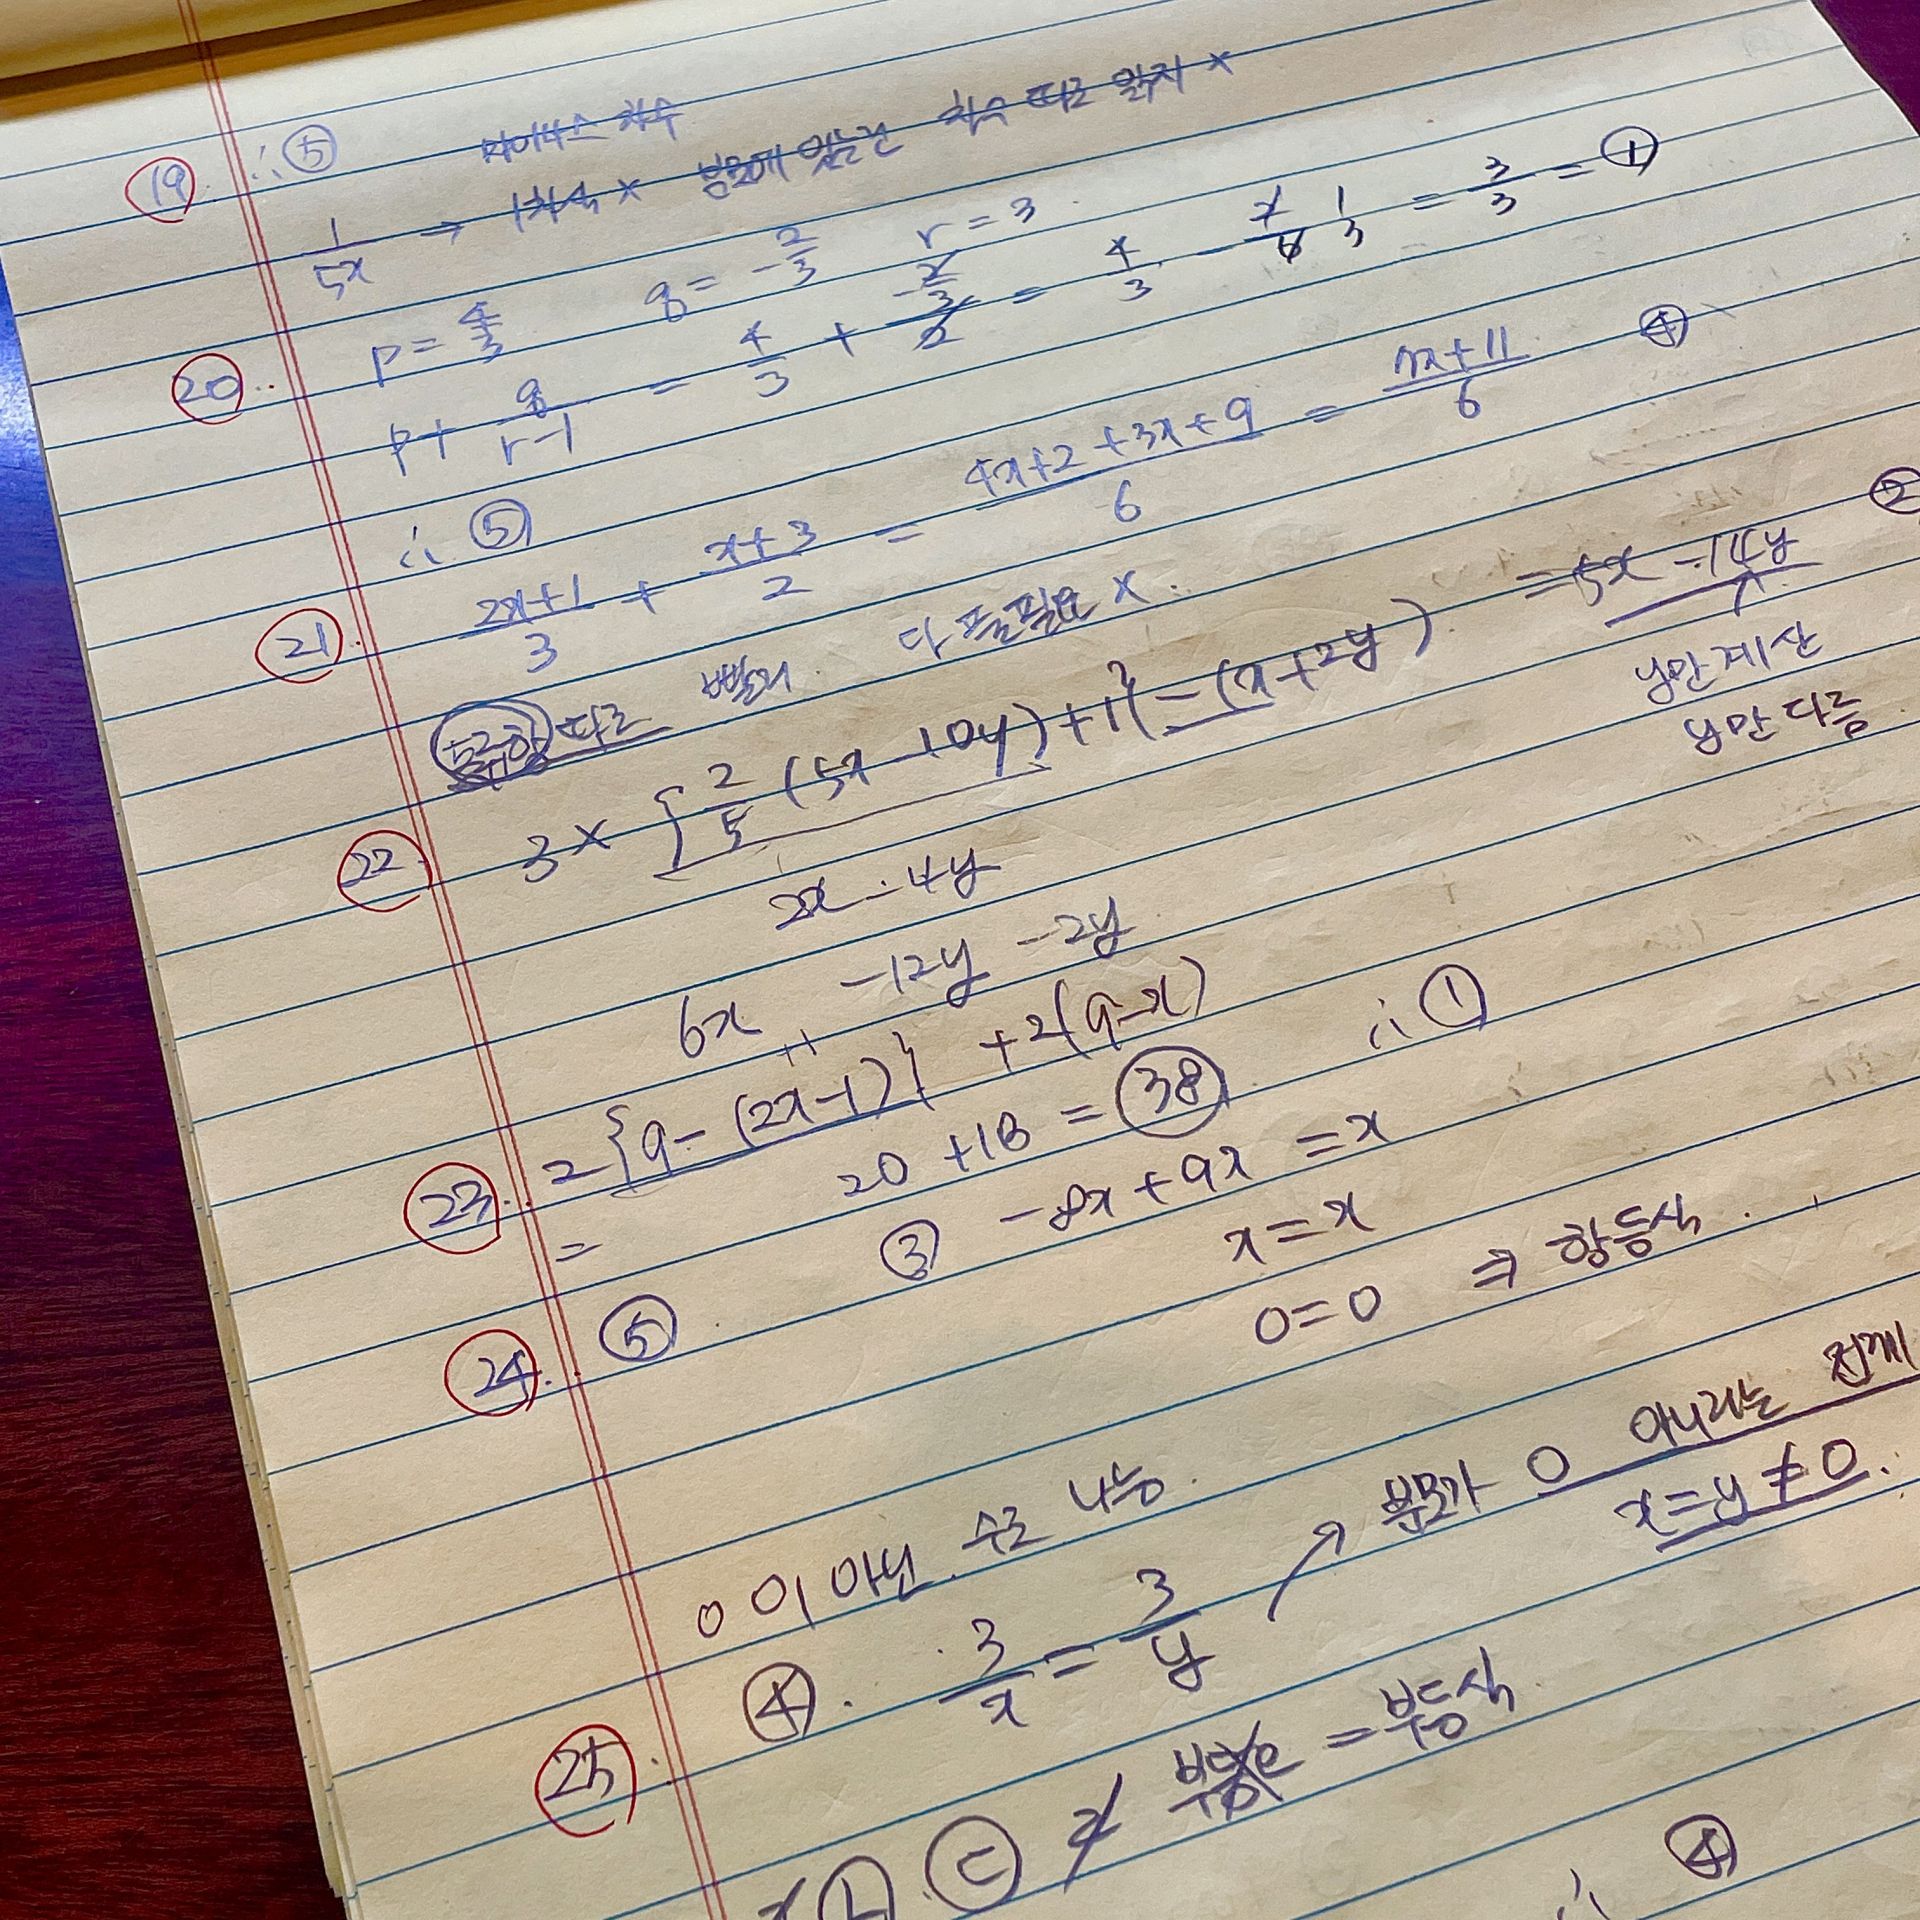 19. ∴ ⑤ 마이너스 차수
1/5x → 1차식 × 분모에 있는건 차수 따로 읽지 ×
20. p = 4/3 q = -2/3 r = 3
p + q/(r-1) = 4/3 + (-2/3)/2 = 4/3 - 1/3 = 3/3 = ①
∴ ⑤
21. (2x+1)/3 + (x+3)/2 = (4x+2+3x+9)/6 = (7x+11)/6 ④
따로 빨리 다 풀필요 ×
22. 3 × {2/5 (5x - 10y) + 1} - (x+2y) = 5x - 14y ②
2x - 4y y만 계산
6x -12y -2y y만 다름
23. 2{9 - (2x-1)} + 2(9-x)
= 20 + 18 = 38 ∴ ①
24. ⑤ ③ -8x + 9x = x
x = x
0 = 0 ⇒ 항등식.
0이 아닌 수로 나눔.
25. ④. 3/x = 3/y ↗ 분모가 0 아니라는 전제
x = y ≠ 0.
ㄴ ㄷ = 부등식
∴ ④